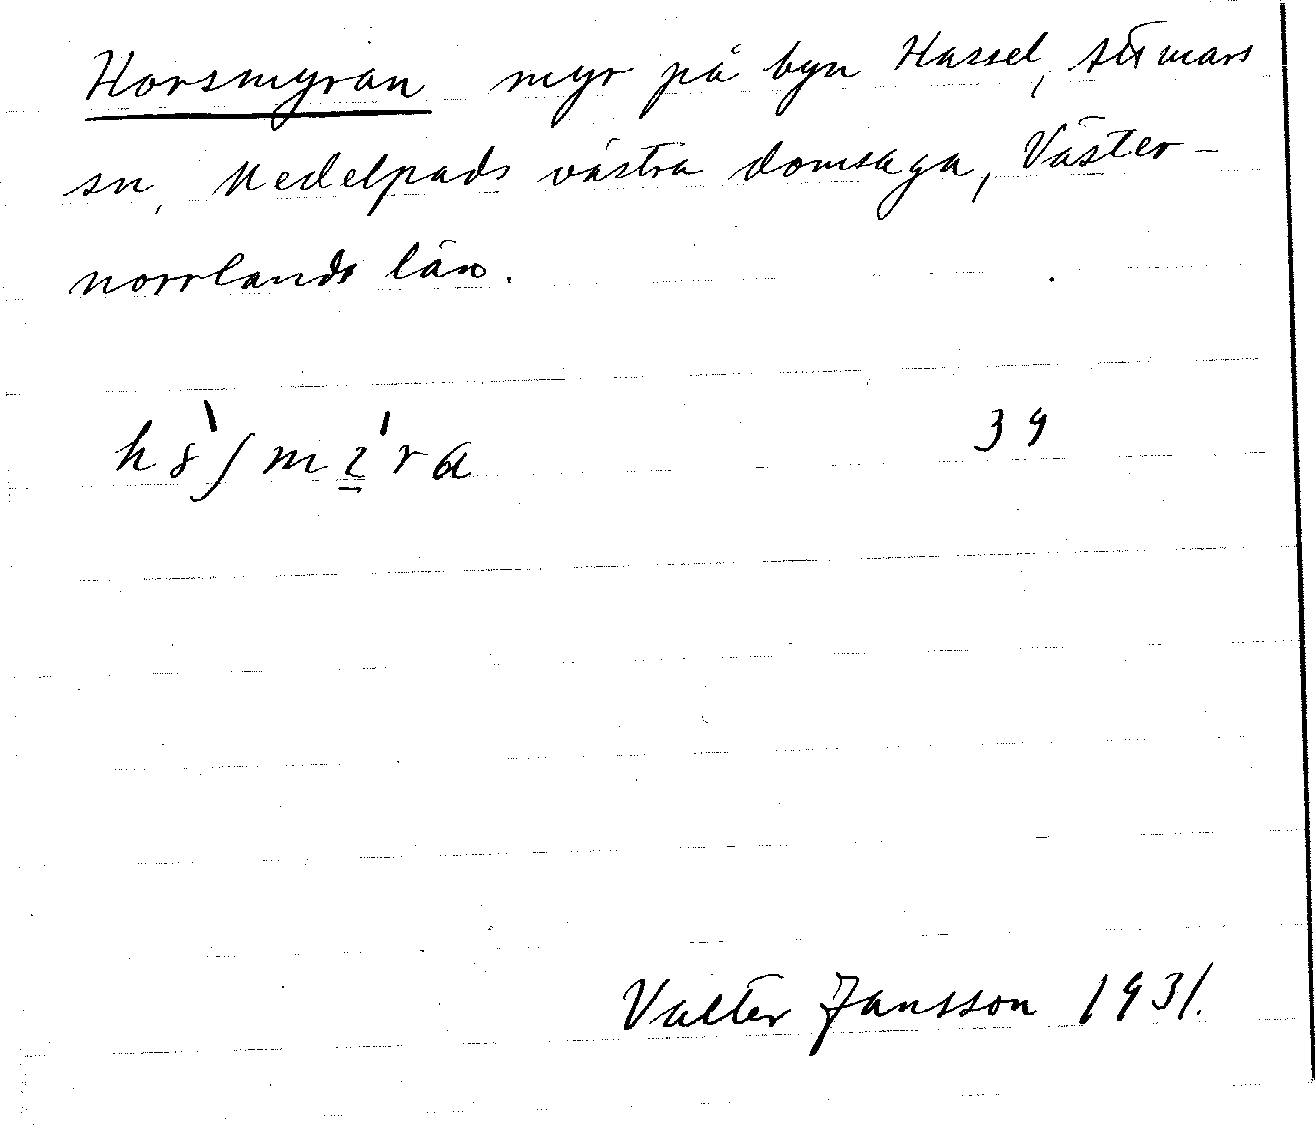 Horsmyran myr på byn Hassel, Attmars
sn, Medelpads västra domsaga, Väster-
norrlands län.
39
Valter Jansson 1931.